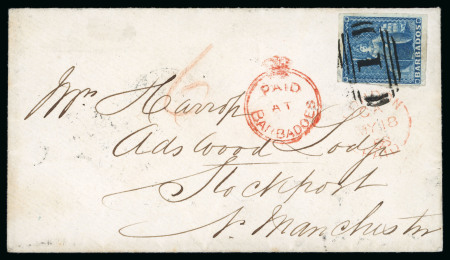 BARBADOS
1
6
PAID
AT
BARBADOES
Mrs Harrop
Adswood Lodge
Stockport
Nr Manchester